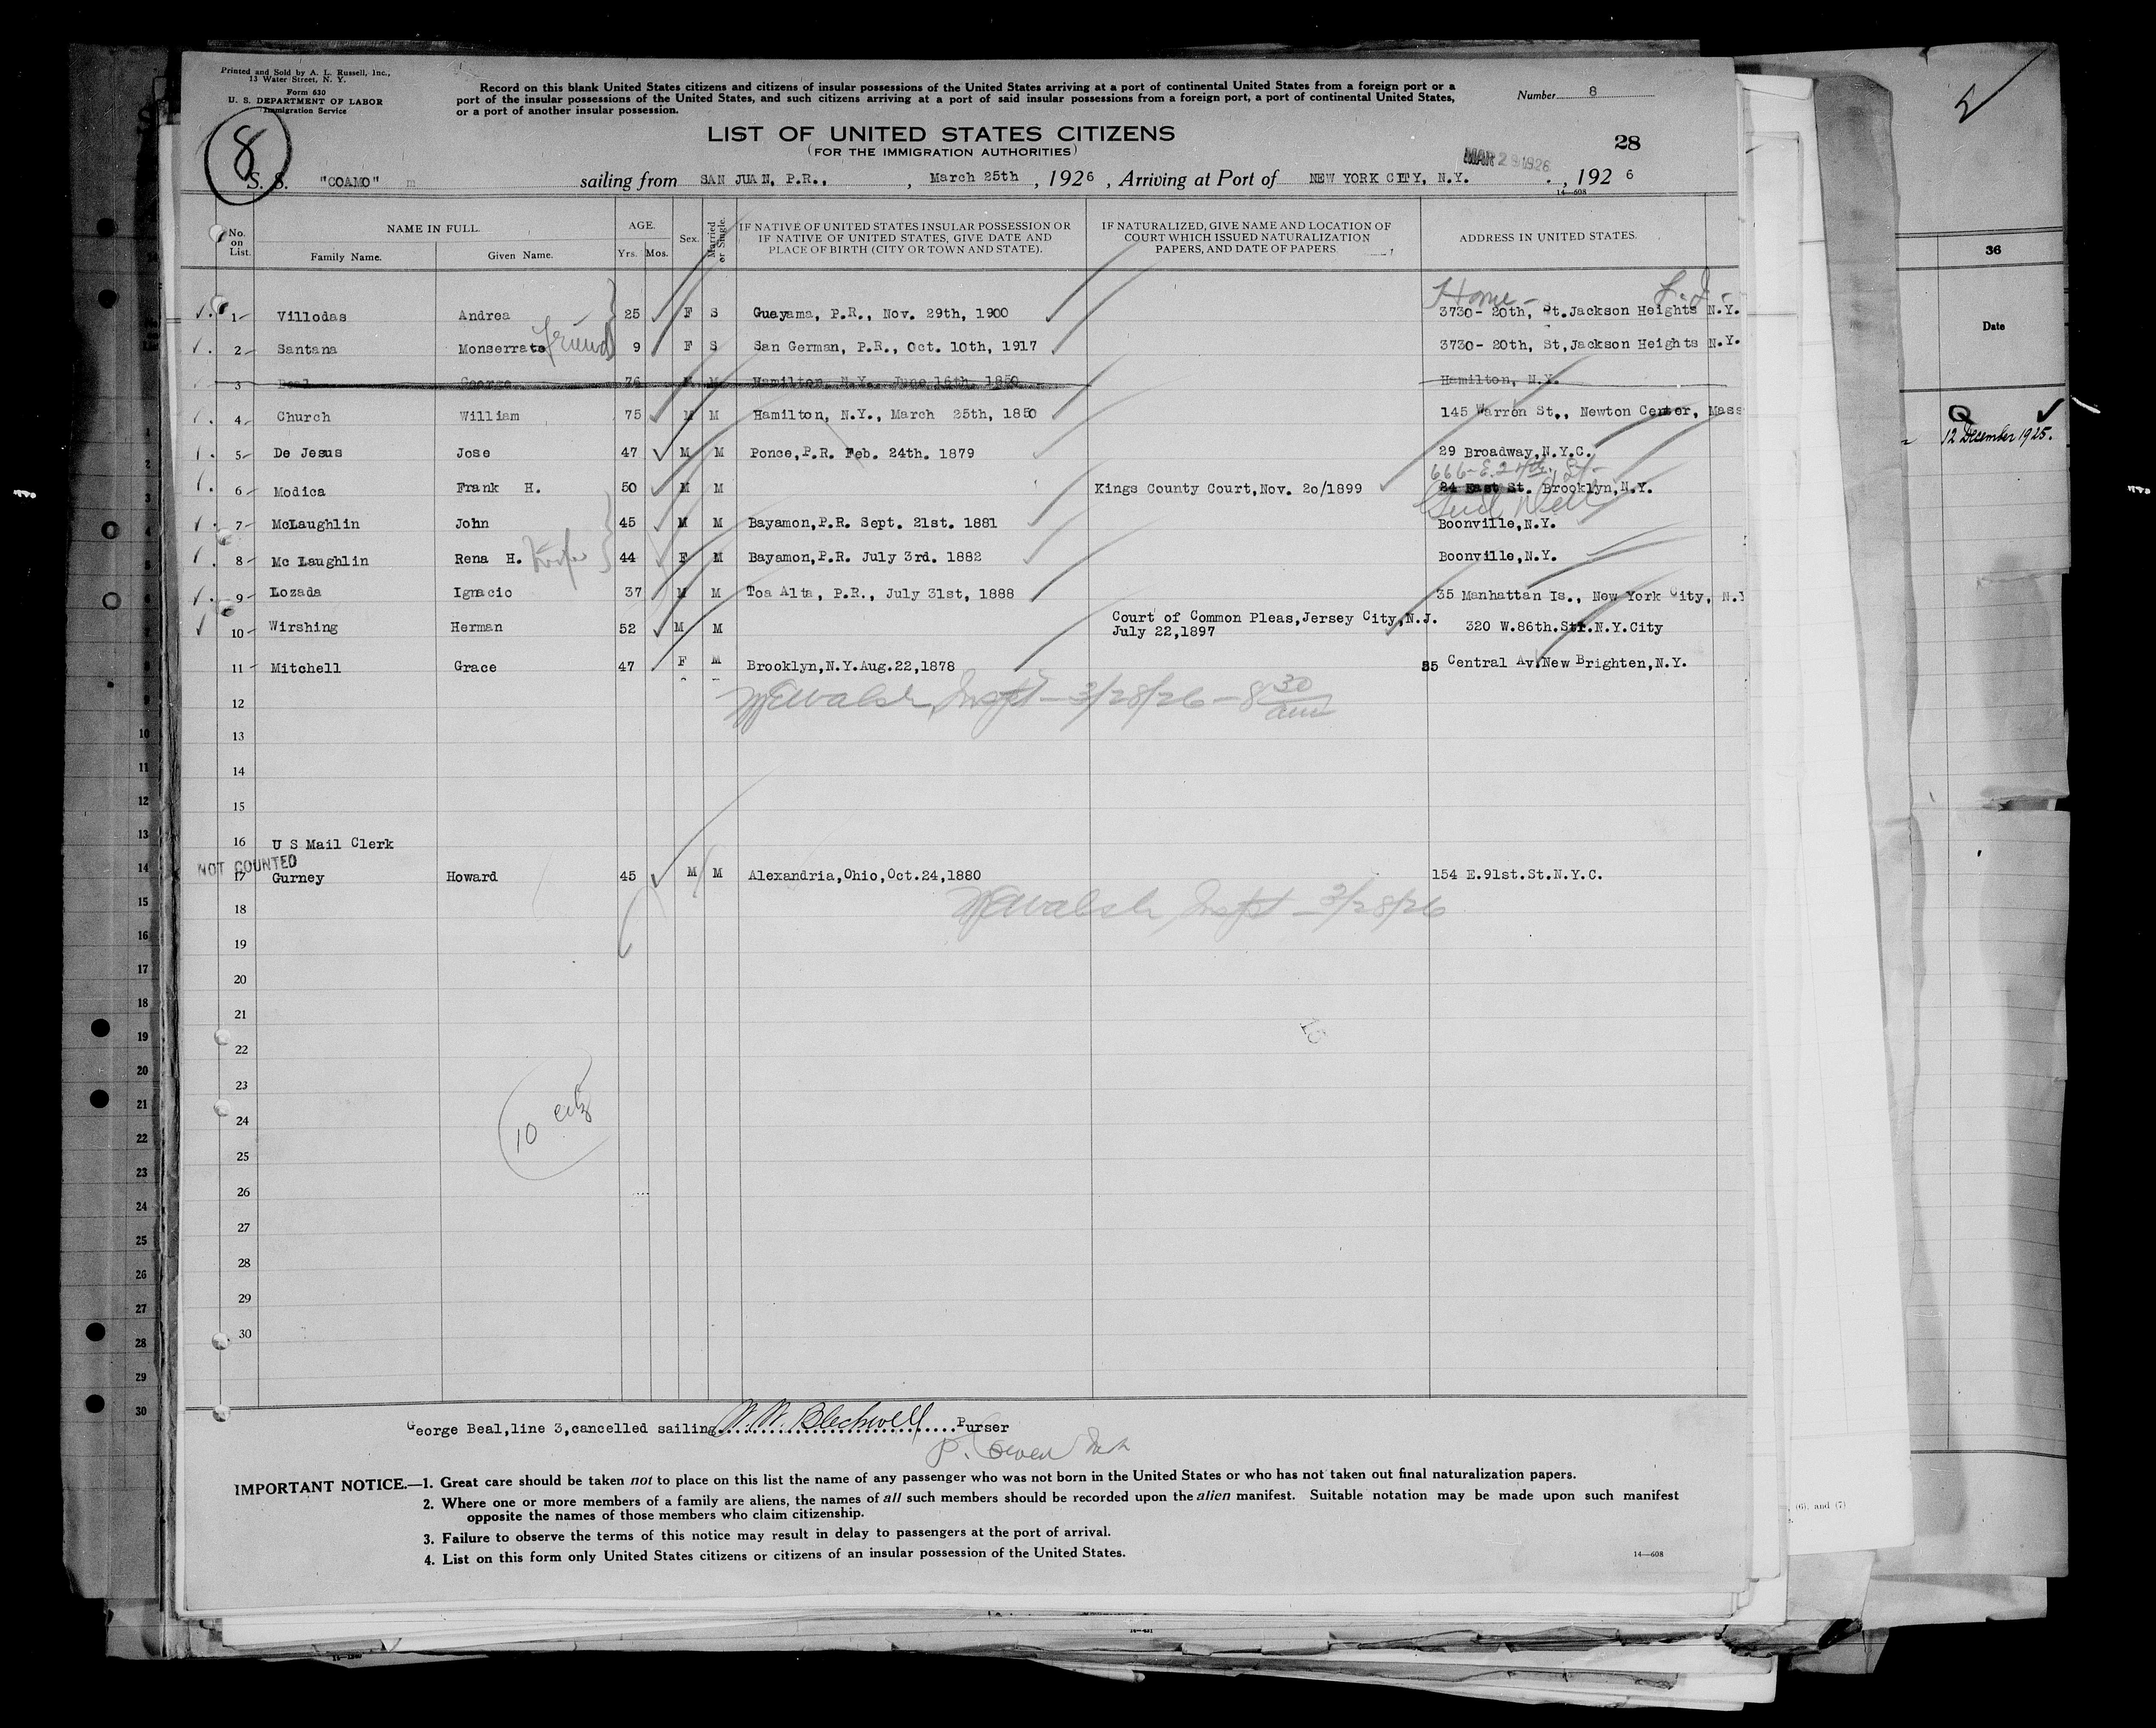 Printed and Sold by A. L. Russell, Inc.,
13 Water Street, N. Y.
Form 630
U. S. DEPARTMENT OF LABOR
Immigration Service
Record on this blank United States citizens and citizens of insular possessions of the United States arriving at a port of continental United States from a foreign port or a
port of the insular possessions of the United States, and such citizens arriving at a port of said insular possessions from a foreign port, a port of continental United States,
or a port of another insular possession.
Number 8
8
LIST OF UNITED STATES CITIZENS
(FOR THE IMMIGRATION AUTHORITIES)
28
MAR 29 1926
S. S. "COAMO" sailing from SAN JUAN, P.R., , March 25th , 1926 , Arriving at Port of NEW YORK CITY, N.Y. , 1926
14—608
No. on List.
NAME IN FULL.
Family Name. Given Name.
AGE.
Yrs. Mos.
Sex.
Married or Single.
IF NATIVE OF UNITED STATES INSULAR POSSESSION OR
IF NATIVE OF UNITED STATES, GIVE DATE AND
PLACE OF BIRTH (CITY OR TOWN AND STATE).
IF NATURALIZED, GIVE NAME AND LOCATION OF
COURT WHICH ISSUED NATURALIZATION
PAPERS, AND DATE OF PAPERS.
ADDRESS IN UNITED STATES.
36
Date
Home - L.I.
1 Villodas Andrea 25 F S Guayama, P.R., Nov. 29th, 1900 3730- 20th, St.Jackson Heights N.Y.
2 Santana Monserrate friend 9 F S San German, P.R., Oct. 10th, 1917 3730- 20th, St,Jackson Heights N.Y.
3 Beal George 76 M M Hamilton, N.Y. June 16th, 1850 Hamilton, N.Y.
4 Church William 75 M M Hamilton, N.Y., March 25th, 1850 145 Warron St., Newton Center, Mass
5 De Jesus Jose 47 M M Ponce,P.R. Feb. 24th. 1879 29 Broadway,N.Y.C.
666-E. 24th St.
6 Modica Frank H. 50 M M Kings County Court,Nov. 20/1899 24 East St. Brooklyn,N.Y.
7 McLaughlin John 45 M M Bayamon,P.R. Sept. 21st. 1881 Boonville,N.Y.
8 Mc Laughlin Rena H. Wife 44 F M Bayamon,P.R. July 3rd. 1882 Boonville,N.Y.
9 Lozada Ignacio 37 M M Toa Alta, P.R., July 31st, 1888 35 Manhattan Is., New York City, N.Y
10 Wirshing Herman 52 M M Court of Common Pleas,Jersey City,N.J. 320 W.86th.Str.N.Y.City
July 22,1897
11 Mitchell Grace 47 F M Brooklyn,N.Y.Aug.22,1878 85 Central Av.New Brighten,N.Y.
12 Walsh, Inspt - 3/28/26 - 8 30 am
13
14
15
16 U S Mail Clerk
NOT COUNTED
17 Gurney Howard 45 M M Alexandria,Ohio,Oct.24,1880 154 E.91st.St.N.Y.C.
18 Walsh, Inspt - 3/28/26
19
20
21
22
23
24
10 citz
25
26
27
28
29
30
12 December 1925.
George Beal,line 3,cancelled sailing W. W. Blackwell Purser
IMPORTANT NOTICE.—1. Great care should be taken not to place on this list the name of any passenger who was not born in the United States or who has not taken out final naturalization papers.
2. Where one or more members of a family are aliens, the names of all such members should be recorded upon the alien manifest. Suitable notation may be made upon such manifest
opposite the names of those members who claim citizenship.
3. Failure to observe the terms of this notice may result in delay to passengers at the port of arrival.
4. List on this form only United States citizens or citizens of an insular possession of the United States.
14—608
(6), and (7)